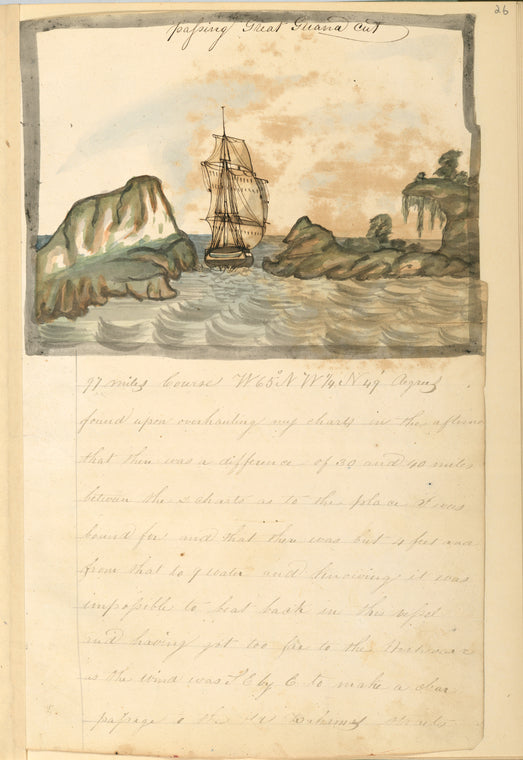 26
passing Great Guana cut
97 miles Course W 65° N W ¼ N 49
found upon overhauling my charts in the afterno
that there was a difference of 30 and 40 miles
between the 2 charts as to the place I was
bound for and that there was but 4 feet and
from that to 9 water and knowing it was
impossible to beat back in this vessel
and having got too far to the
as the wind was S E by E to make a clear
passage